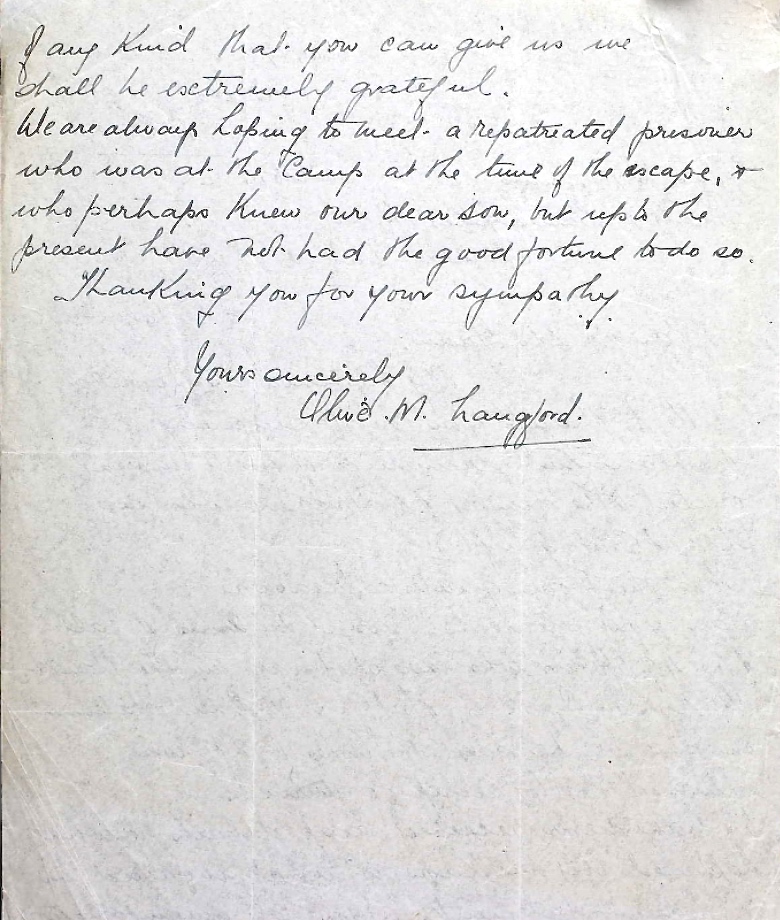 of any kind that you can give us we
shall be extremely grateful.
We are always hoping to meet a repatreated prisoner
who was at the Camp at the time of the escape, &
who perhaps knew our dear son, but up to the
present have not had the good fortune to do so.
Thanking you for your sympathy.
Yours sincerely
Olive. M. Langford.